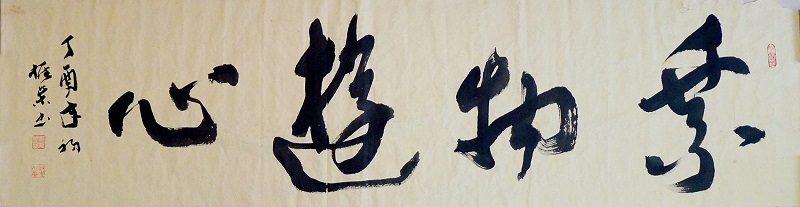 乘物遊心
丁酉年初
雄榮书